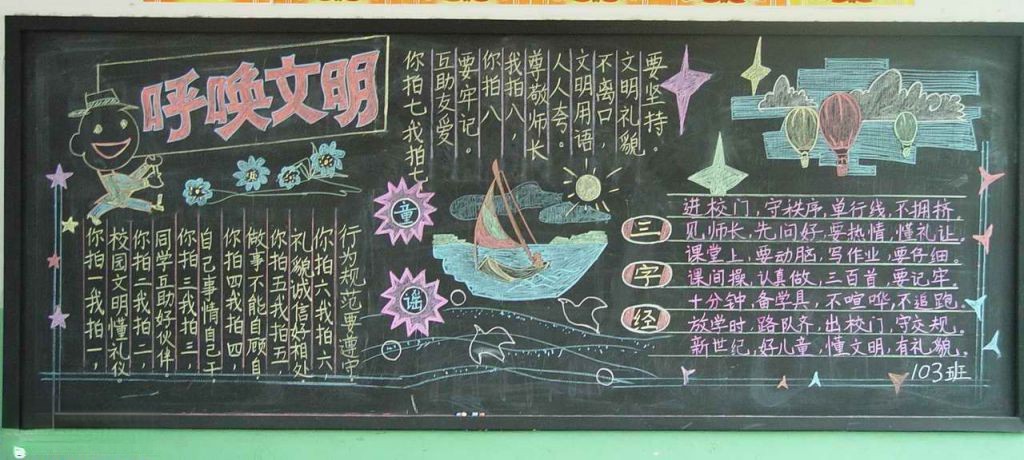 呼唤文明
你拍一我拍一，
校园文明懂礼仪。
你拍二我拍二，
同学互助好伙伴
你拍三我拍三，
自己事情自己干，
你拍四我拍四，
做事不能自顾自
你拍五我拍五
礼貌诚信好相处
你拍六我拍六
行为规范要遵守
你拍七我拍七
互助友爱
要牢记。
你拍八
我拍八，
尊敬师长
人人夸。
文明用语
不离口，
文明礼貌
要坚持。
童
谣
三
字
经
进校门，守秩序，单行线，不拥挤。
见师长，先问好，要热情，懂礼让。
课堂上，要动脑，写作业，要仔细。
课间操，认真做，三百首，要记牢
十分钟，备学具，不喧哗，不追跑。
放学时，路队齐，出校门，守交规。
新世纪，好儿童，懂文明，有礼貌。
103班